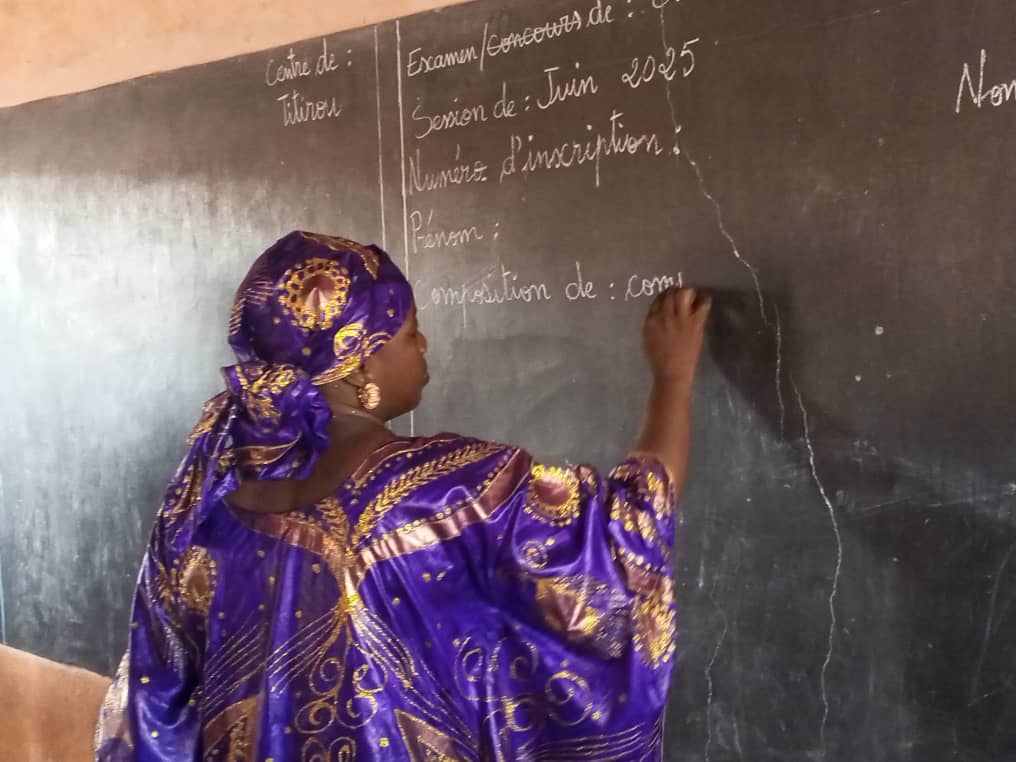 Centre de :
Titirou
Examen/Concours de :
Session de : Juin 2025
Numéro d'inscription :
Prénom :
Composition de : com
Nom